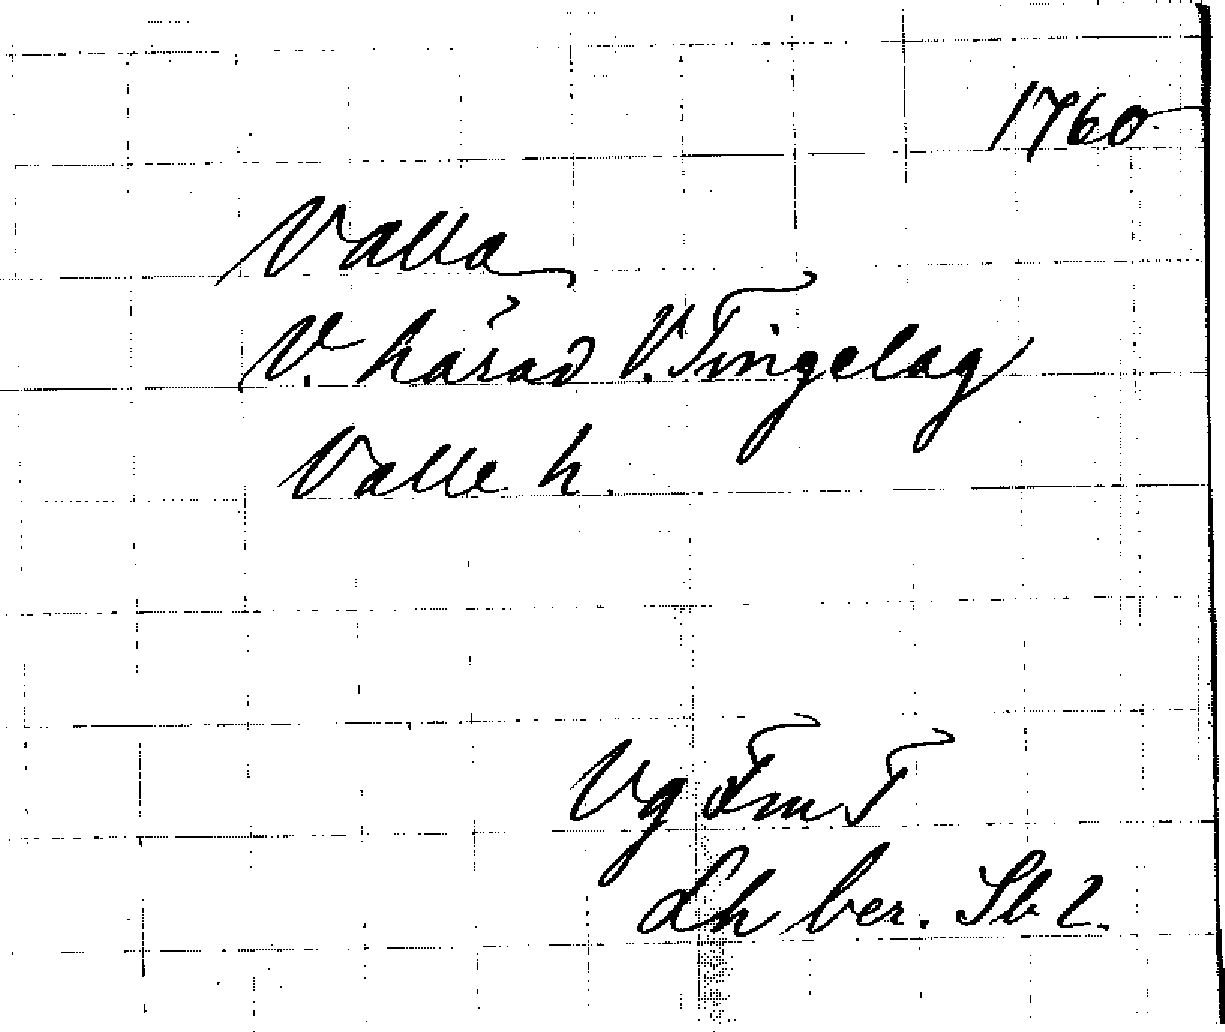 1760
Valla
V. härad V. Tingelag
Valle h.
Vg Fm T
Lh ber. Sb 2.